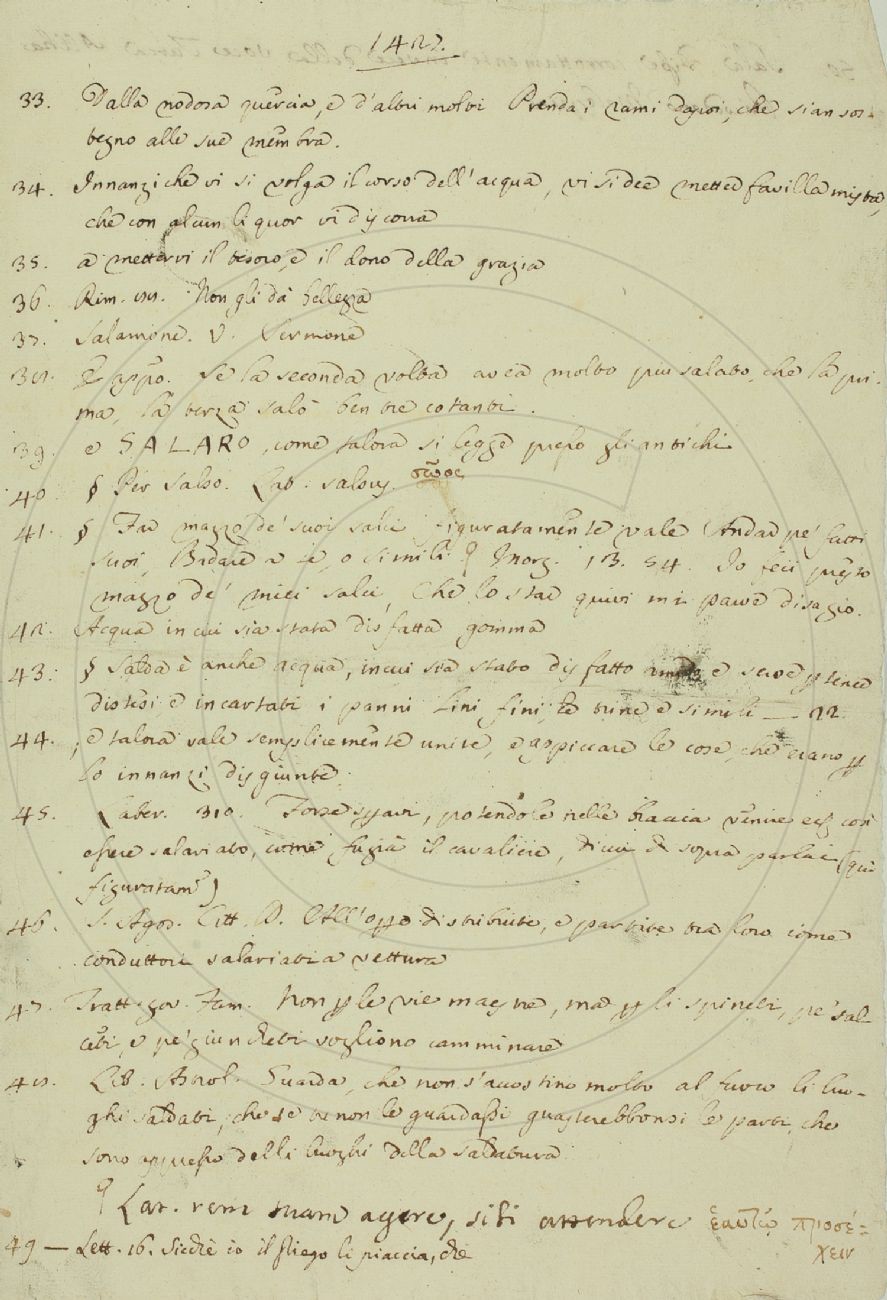 1427.
33. Dalla nodosa quercia, e d'altri molti Prenda i rami dopoi, che sian sos-
tegno alle sue membra.
34. Innanzi che vi si volga il corso dell'acqua, vi si dee metter favilla mista,
che con alcun liquor vi discorra
35. a mettervi il tesoro, e il dono della grazia
36. Rim. Non gli dà bellezza
37. Salamone. V. Sermone
38. E appo. Se la seconda volta avea molto più salato, che la pri-
ma, la terza salò ben tre cotanti.
39. e SALARO, come talora si legge presso gli antichi
40. § Per Salvo. Lat. salvus. σῶος
41. § Far mazzo de' suoi salci figuratamente vale Andar pe' fatti
suoi, Badare a se, o simili ¶ Morg. 13. 54. Io feci presto
mazzo de' miei salci, Che lo star quivi mi parve disagio.
42. Acqua in cui sia stata disfatta gomma
43. § Salda è anche acqua, in cui sia stato disfatto amido e serve p tener
distesi, e incartati i panni lini fini, le trine, e simili — 22
44. , e talora vale semplicemente unire, e appiccare le cose, che erano p
lo innanzi disgiunte.
45. Laber. 310. Forse sparvi, potendole nelle braccia venire così
essere salariato, come fugia il cavaliere, di cui di sopra parlai (qui
figuratam.)
46. S. Agos. Citt. D. All'oppo distribuite, e partite tra loro come
conduttori salariati a vettura
47. Tratt. gov. Fam. Non p le vie magne, ma p li spineti, pe' sal-
ceti, e pe' giuncheti vogliono camminare
48. Lib. Astrol. Guarda, che non s'accostino molto al fuoco li luo-
ghi saldati, che se tu non le guardassi guasterebbonsi le parti, che
sono appresso delli luoghi della saldatura
¶ Lat. rem suam agere, sibi attendere ἑαυτῷ προσέ-
χειν
49 — Lett. 16. Sicchè io il sliego li piaccia, che